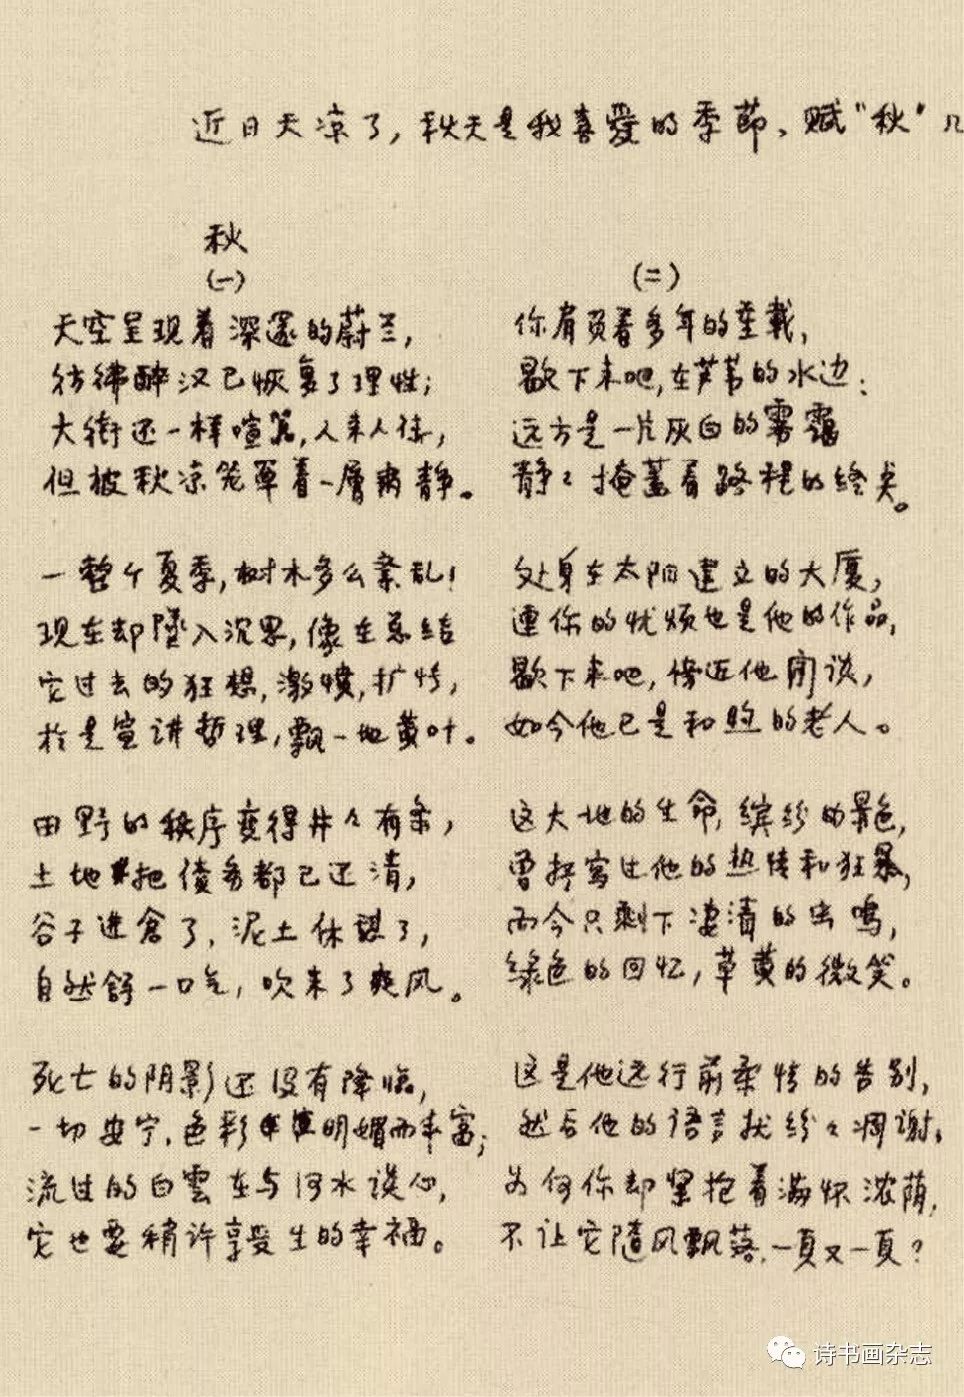 近日天凉了，秋天是我喜爱的季節、赋“秋”几
秋
（一）
天空呈现着深邃的蔚兰，
彷彿醉汉已恢复了理性；
大街还一样喧嚣，人来人往，
但被秋凉笼罩着一層肃静。
一整个夏季，树木多么紊乱！
现在却墜入沉思，像在总结
它过去的狂想，激愤，扩张，
於是宣讲哲理，飘一地黄叶。
田野的秩序变得井々有条，
土地把债务都已还清，
谷子进仓了，泥土休憩了，
自然舒一口气，吹来了爽风。
死亡的阴影还没有降临，
一切安宁，色彩明媚而丰富；
流过的白雲在与河水谈心，
它也要稍许享受生的幸福。
（二）
你肩负着多年的重载，
歇下来吧，在芦苇的水边：
远方是一片灰白的雾靄
静々掩盖着路程的终点。
处身在太阳建立的大厦，
連你的忧烦也是他的作品，
歇下来吧，傍近他闲谈，
如今他已是和煦的老人。
这大地的生命，缤纷的景色，
曾抒写过他的热情和狂暴，
而今只剩下凄清的虫鳴，
绿色的回忆，草黄的微笑。
这是他远行前柔情的告别，
然后他的语言就纷々凋谢；
为何你却紧抱着满怀浓荫，
不让它随风飘落，一頁又一頁？
诗书画杂志